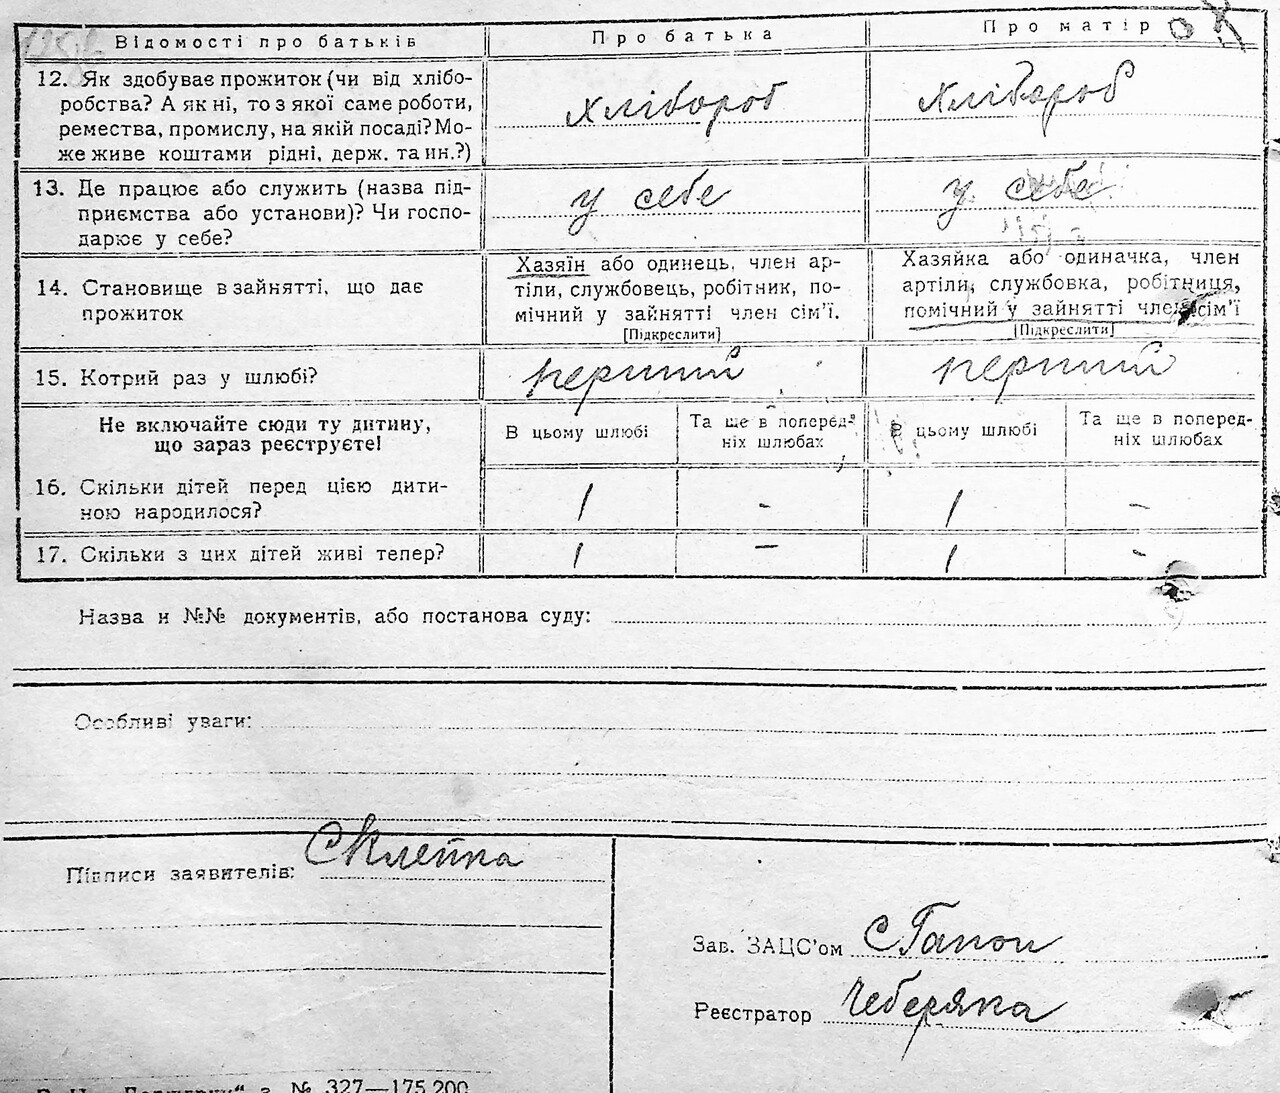 Відомості про батьків Про батька Про матір
12. Як здобуває прожиток (чи від хлібо-
робства? А як ні, то з якої саме роботи,
ремества, промислу, на якій посаді? Мо-
же живе коштами рідні, держ. та ин.?)
хлібороб хлібороб
13. Де працює або служить (назва під-
приємства або установи)? Чи госпо-
дарює у себе?
у себе у себе
14. Становище в зайнятті, що дає
прожиток
Хазяїн або одинець, член ар-
тіли, службовець, робітник, по-
мічний у зайнятті член сім'ї.
[Підкреслити]
Хазяйка або одиначка, член
артіли, службовка, робітниця,
помічний у зайнятті член сім'ї
[Підкреслити]
15. Котрий раз у шлюбі? перший перший
Не включайте сюди ту дитину,
що зараз реєструєте!
В цьому шлюбі
Та ще в поперед-
ніх шлюбах
В цьому шлюбі
Та ще в поперед-
ніх шлюбах
16. Скільки дітей перед цією дити-
ною народилося?
1 - 1 -
17. Скільки з цих дітей живі тепер? 1 - 1 -
Назва и №№ документів, або постанова суду:
Особливі уваги:
Підписи заявителів: Склепка
Зав. ЗАЦС'ом С Гапон
Реєстратор Чеберяка
№ 327—175.200